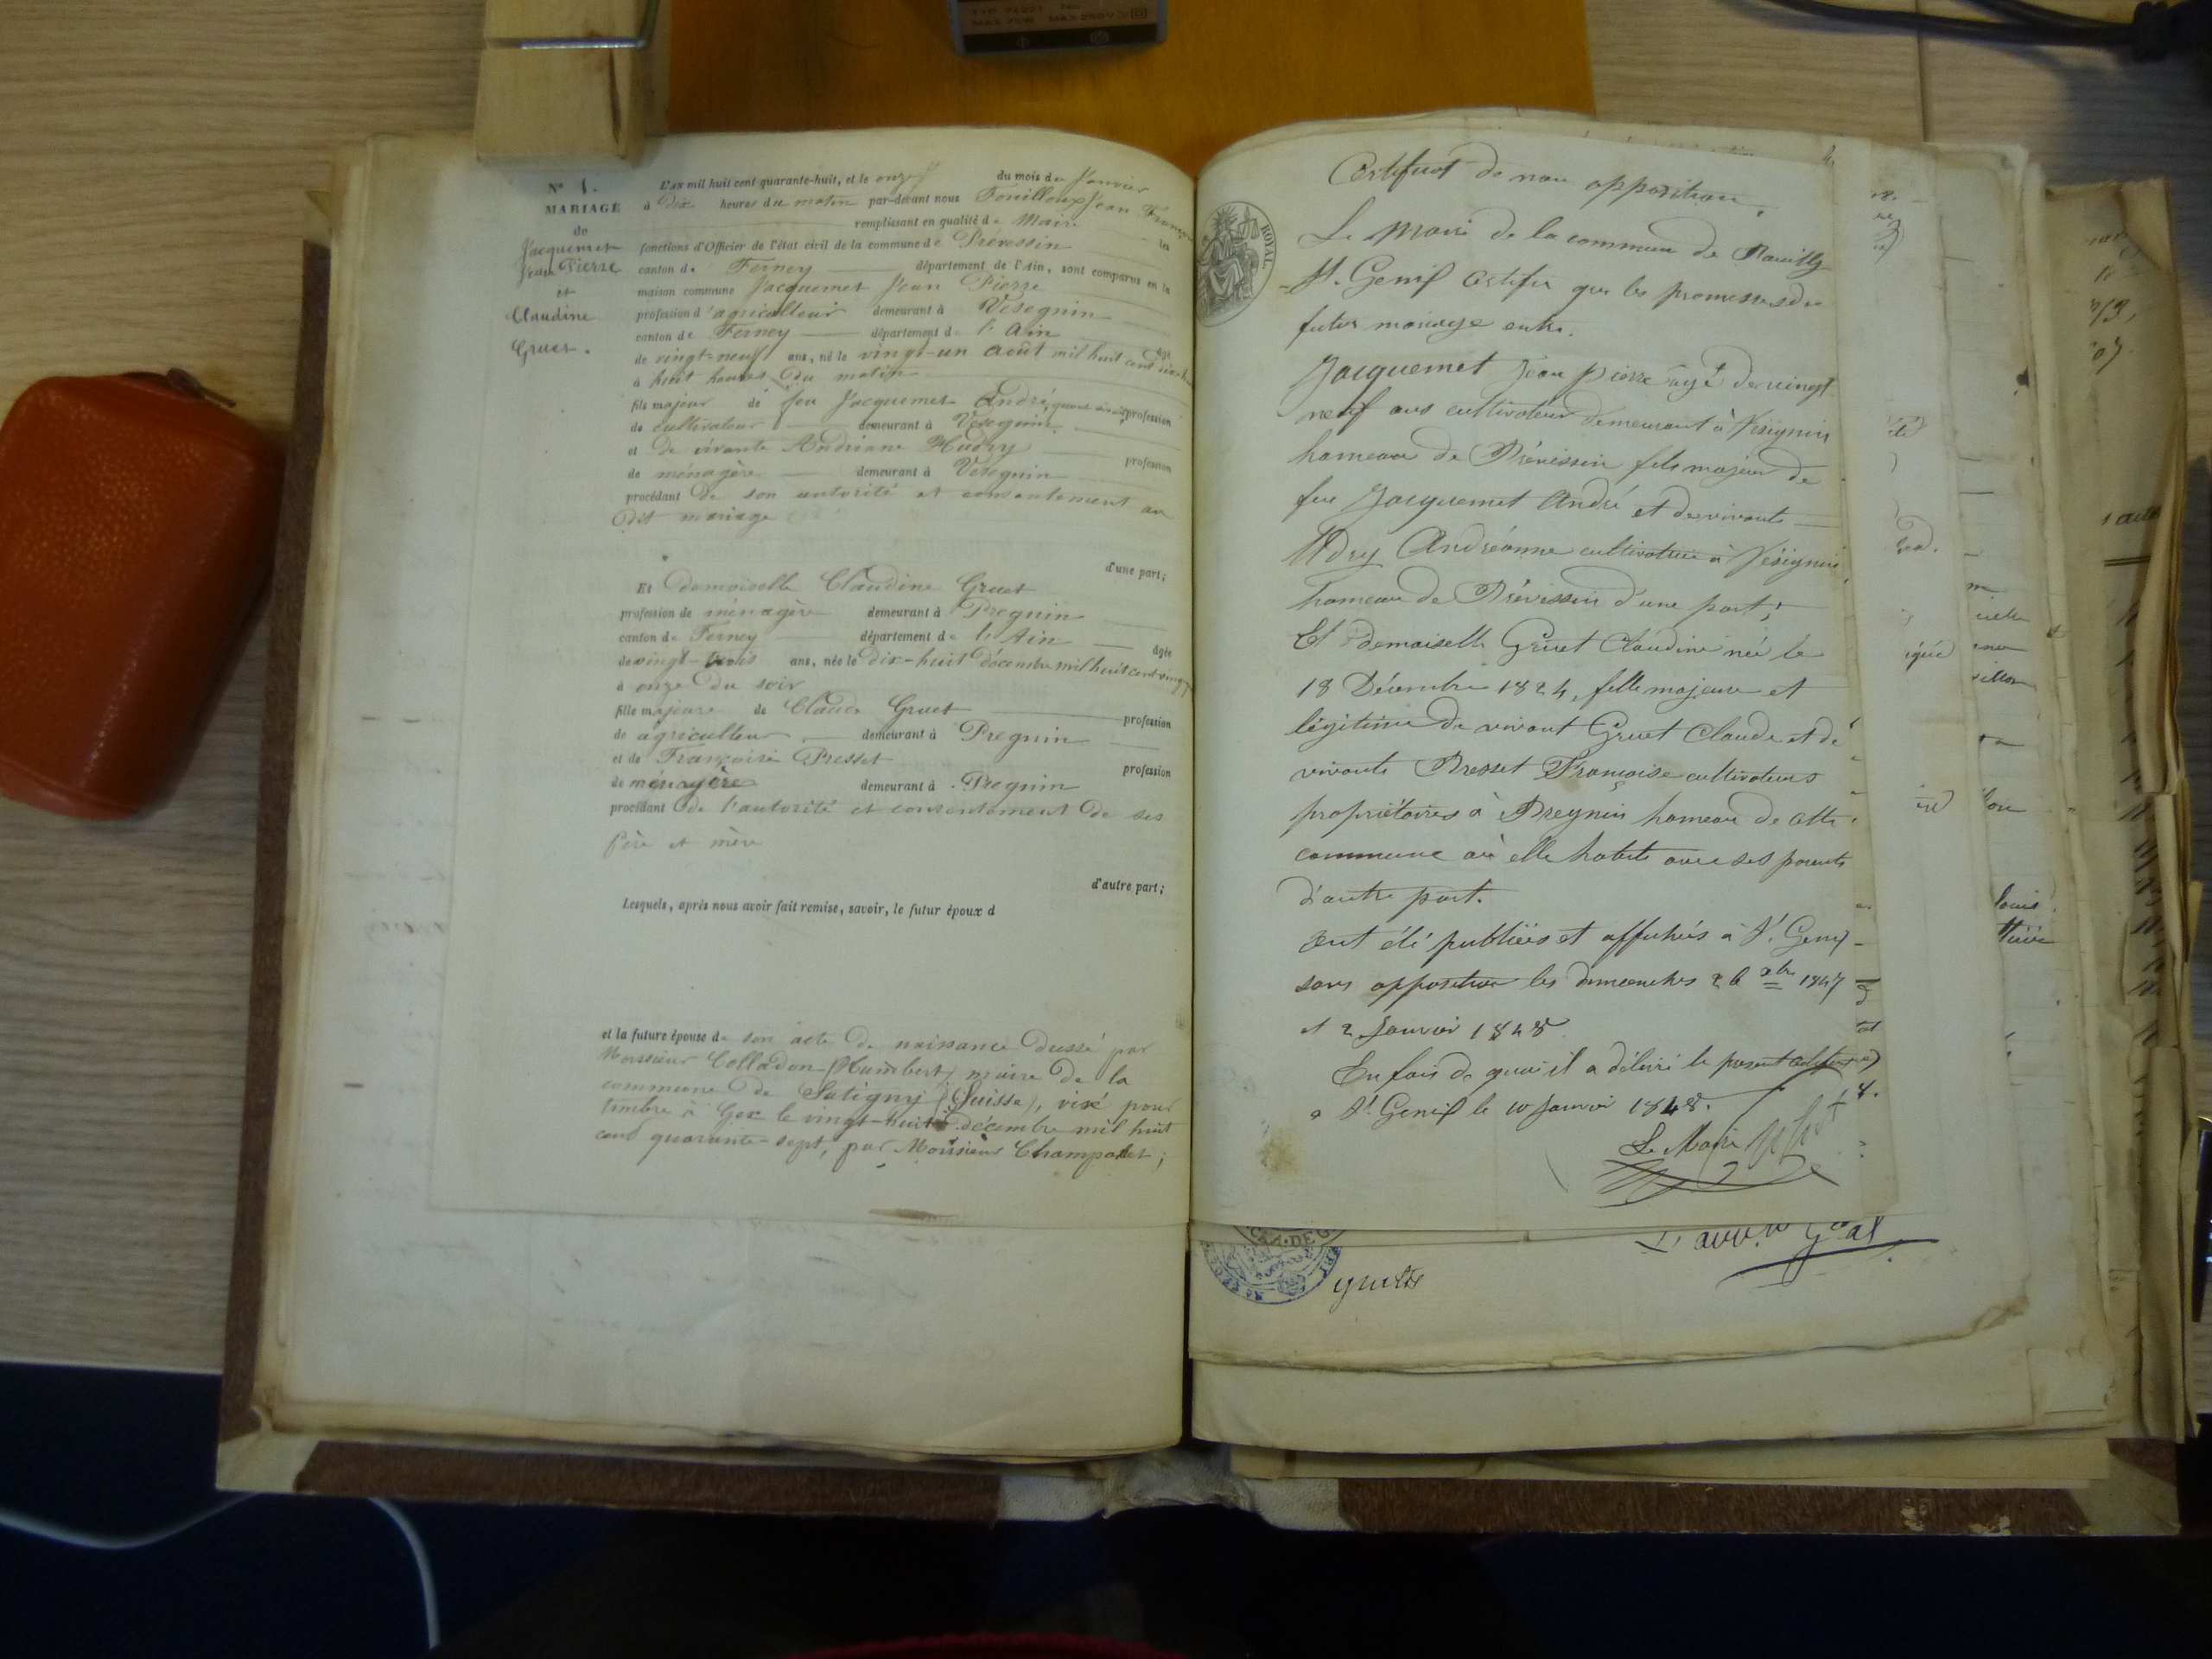 N° 1.
MARIAGE
de
Jacquemet
Jean Pierre
et
Claudine
Gruet.
L'AN mil huit cent quarante-huit, et le onze du mois de Janvier
à dix heures du matin par-devant nous Fouilloux Jean François
remplissant en qualité de Maire les
fonctions d'Officier de l'état civil de la commune de Prévessin
canton de Ferney département de l'Ain, sont comparus en la
maison commune Jacquemet Jean Pierre
profession d'agriculteur demeurant à Vésegnin
canton de Ferney département de l'Ain âgé
de vingt-neuf ans, né le vingt-un août mil huit cent
à huit heures du matin
fils majeur de feu Jacquemet André, profession
de cultivateur demeurant à Vésegnin
et de vivante Andriane Hudry profession
de ménagère demeurant à Vésegnin
procédant de son autorité et consentement au
dit mariage
d'une part;
Et demoiselle Claudine Gruet
profession de ménagère demeurant à Pregnin
canton de Ferney département de l'Ain âgée
de vingt-trois ans, née le dix-huit décembre mil huit cent vingt
à onze du soir
fille majeure de Claude Gruet profession
de agriculteur demeurant à Pregnin
et de Françoise Presset profession
de ménagère demeurant à Pregnin
procédant de l'autorité et consentement de ses
père et mère
d'autre part;
Lesquels, après nous avoir fait remise, savoir, le futur époux d
et la future épouse de son acte de naissance dressé par
Monsieur Colladon (Humbert) maire de la
commune de Satigny (Suisse), visé pour
timbre à Gex le vingt-huit décembre mil huit
cent quarante-sept, par Monsieur Champalet;
ROYAL
Certificat de non opposition.
Le Maire de la commune de Pouilly
St. Genis certifie que les promesses de
futur mariage entre.
Jacquemet Jean pierre âgé de vingt
neuf ans cultivateur demeurant à Vésignin
hameau de Prévessin fils majeur de
feu Jacquemet André et de vivante
Udry Andréanne cultivatrice à Vésignin
hameau de Prévessin d'une part;
Et demoiselle Gruet Claudine née le
18 Décembre 1824, fille majeure et
légitime de vivant Gruet Claude et de
vivante Presset Françoise cultivateurs
propriétaires à Pregnin hameau de cette
commune où elle habite avec ses parents
d'autre part.
ont été publiées et affichées à St. Genis
sans opposition les dimanches 26 xbre 1847
et 2 Janvier 1848.
En fois de quoi il a délivré le présent certificat
à St. Genis le 10 Janvier 1848.
Le Maire